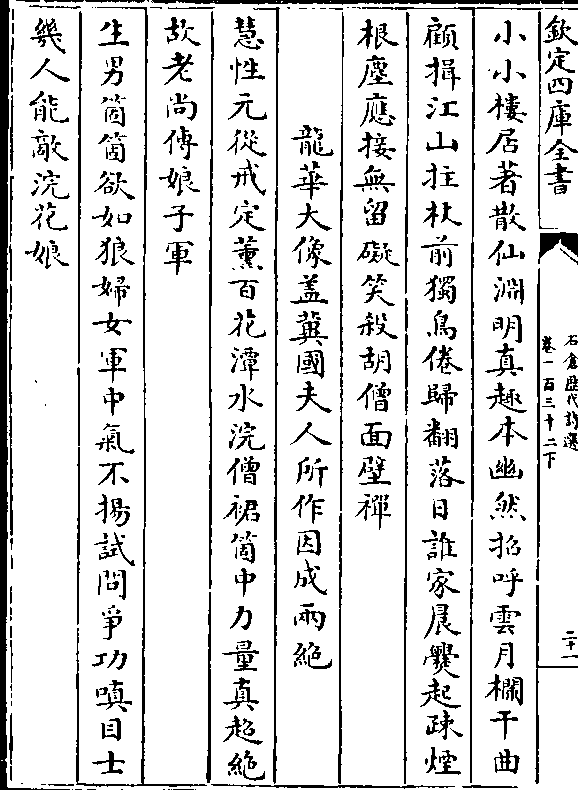 欽定四庫全書
石倉歴代詩選
卷一百三十二下
二十一
小小樓居著散仙淵明真趣本幽然招呼雲月欄干曲
顧揖江山拄杖前獨鳥倦歸翻落日誰家晨爨起疎煙
根塵應接無留礙笑殺胡僧面壁禪
龍華大像盖冀國夫人所作因成兩絶
慧性元從戒定薰百花潭水浣僧裙箇中力量真超絶
故老尚傳娘子軍
生男箇箇欲如狼婦女軍中氣不揚試問爭功嗔目士
幾人能敵浣花娘